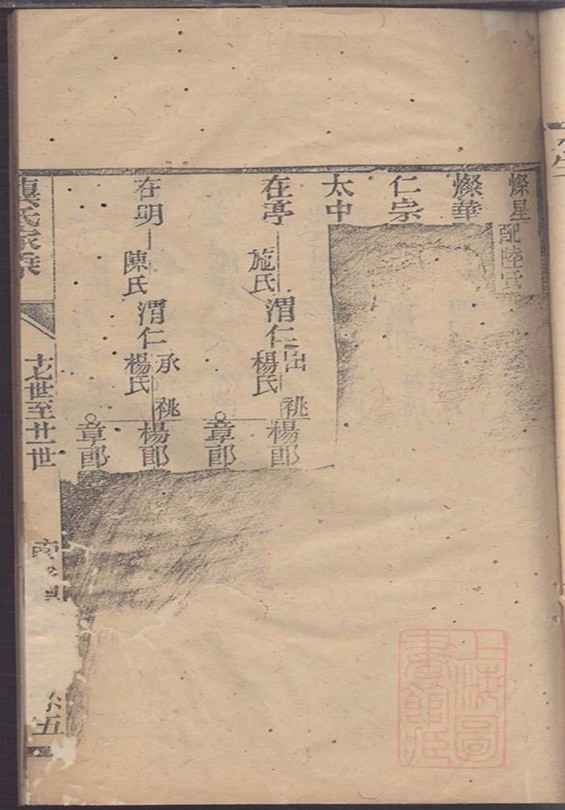 燦星 配陸氏
燦華
仁宗
太中
在亭 施氏 渭仁 出祧 楊氏 楊郎
章郎
在明 陳氏 渭仁 承祧 楊氏 楊郎
章郎
氏家乘
十七世至廿一世
五
上海圖書館藏